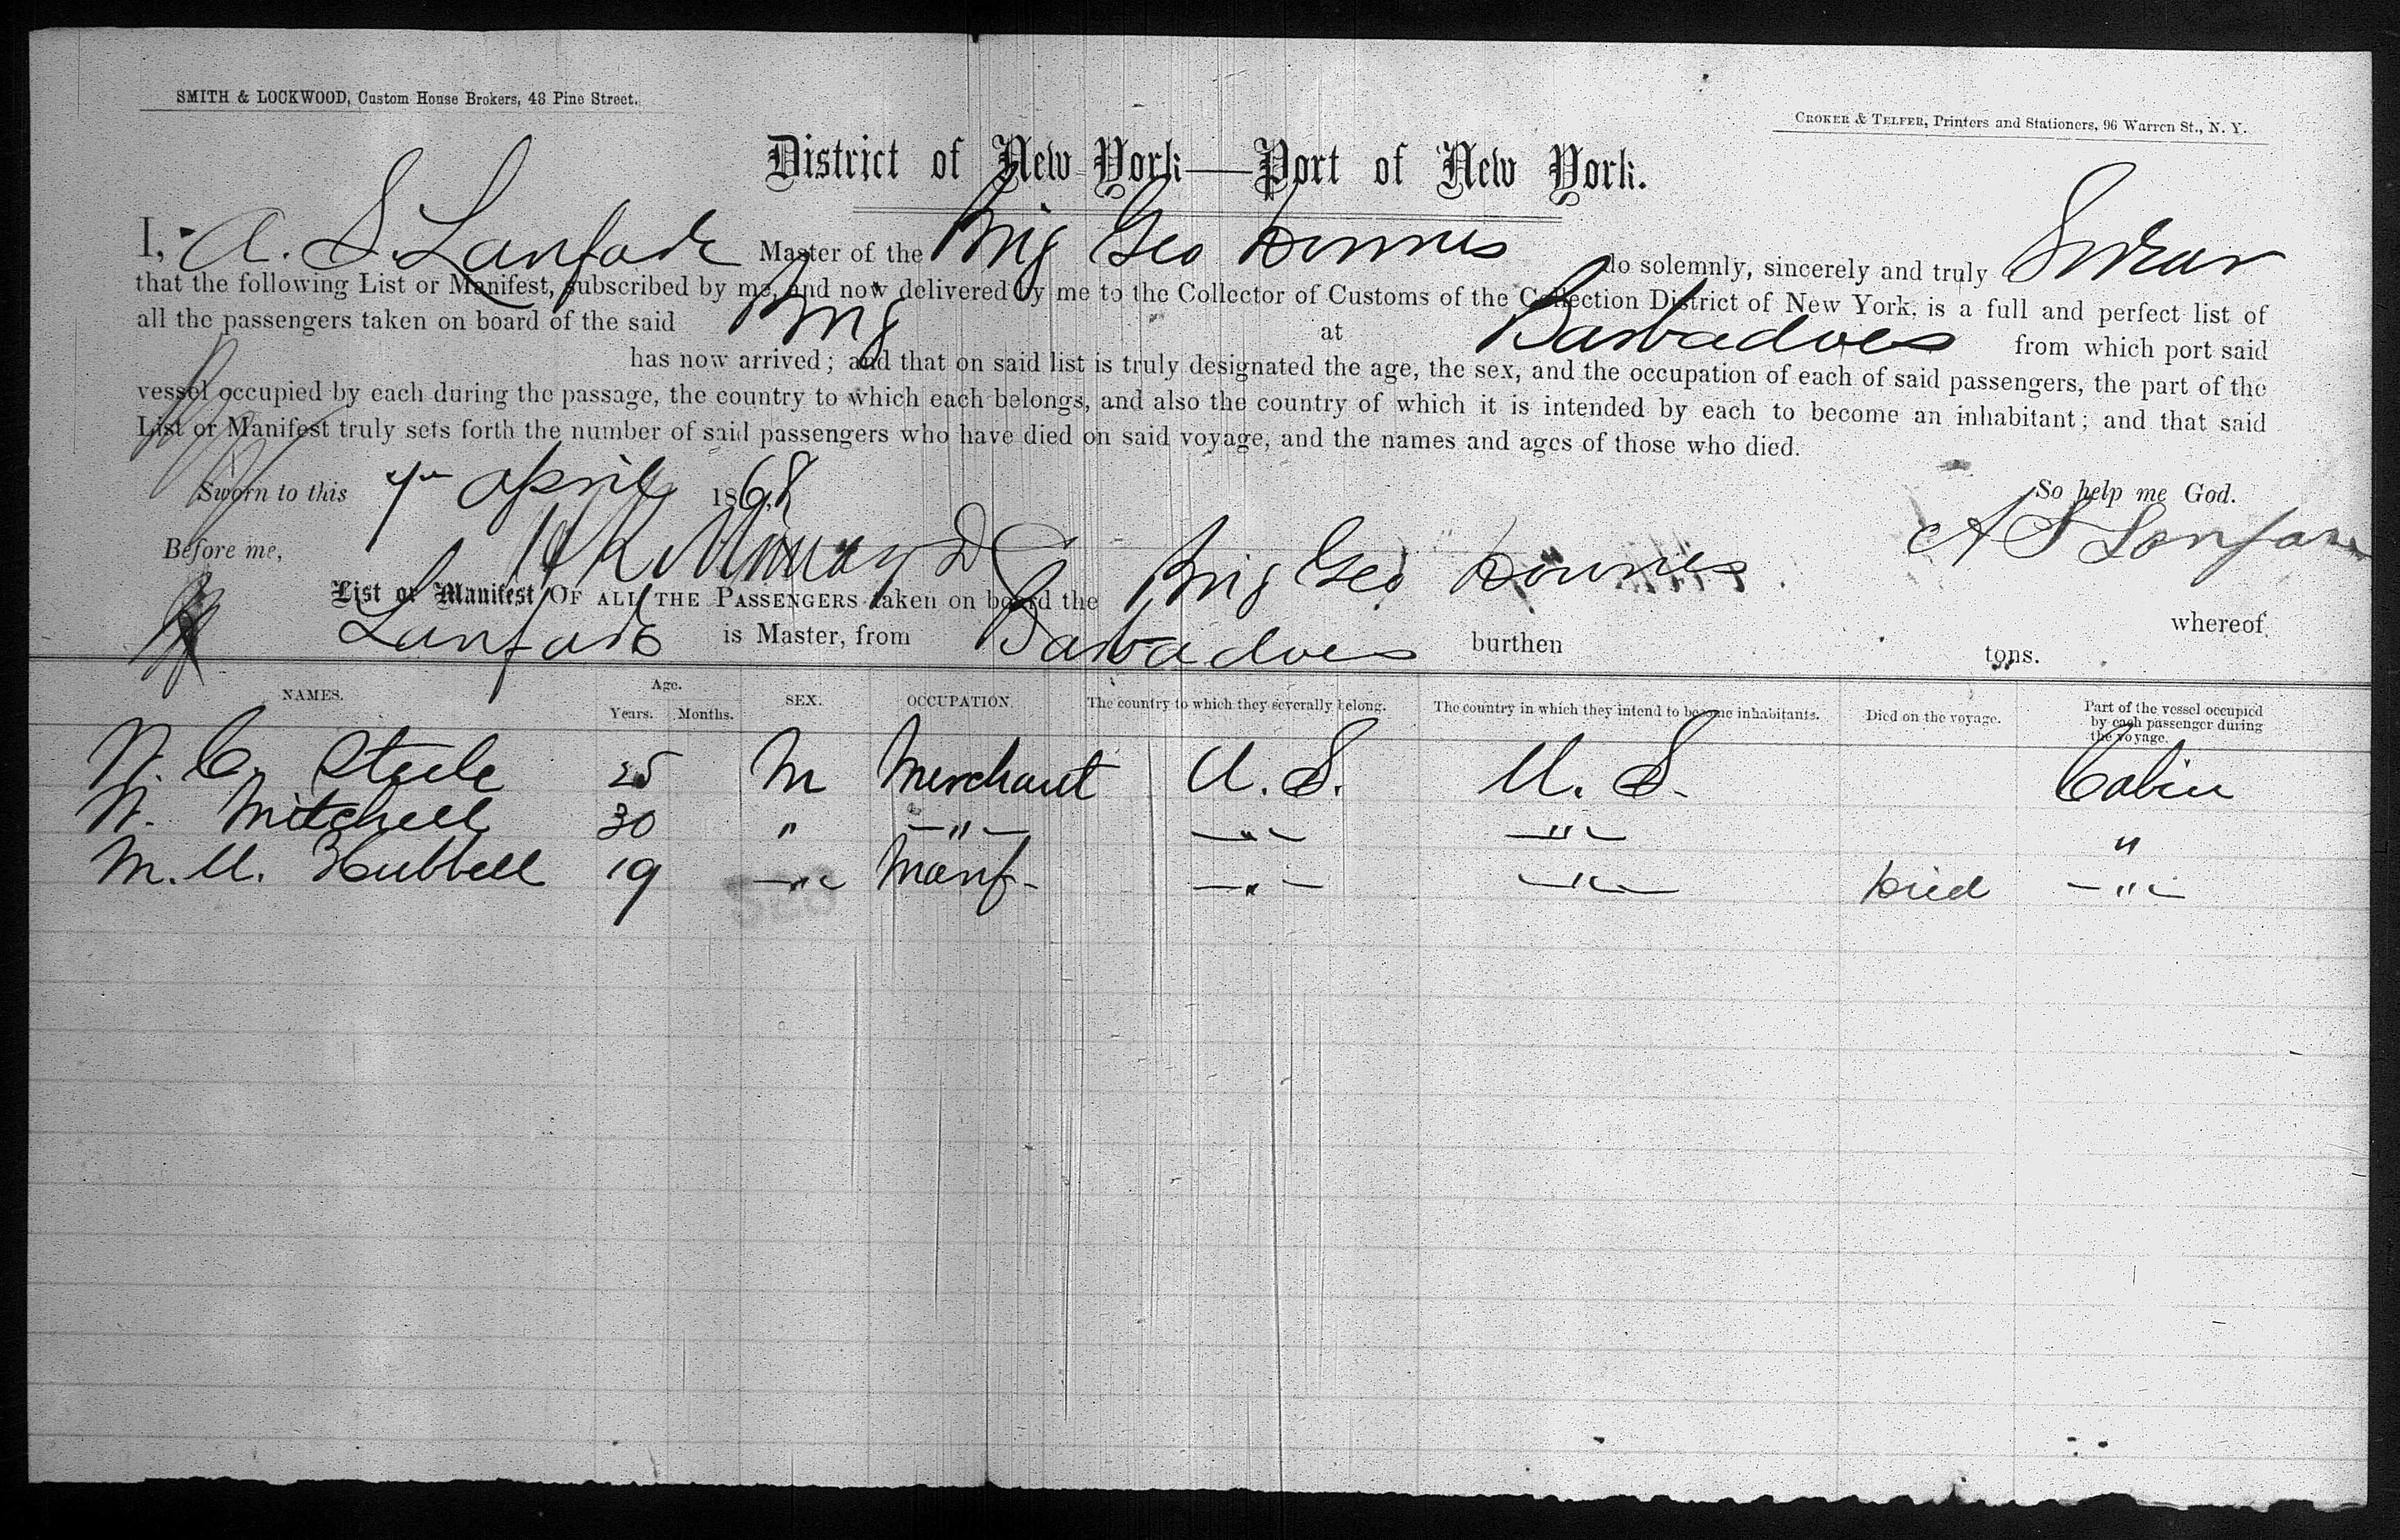 SMITH & LOCKWOOD, Custom House Brokers, 48 Pine Street.
CROKER & TELFER, Printers and Stationers, 96 Warren St., N. Y.
District of New York—Port of New York.
I, A. S. Master of the Brig Geo Downes do solemnly, sincerely and truly Swear
that the following List or Manifest, subscribed by me, and now delivered by me to the Collector of Customs of the Collection District of New York, is a full and perfect list of
all the passengers taken on board of the said Brig at Barbadoes from which port said
has now arrived; and that on said list is truly designated the age, the sex, and the occupation of each of said passengers, the part of the
vessel occupied by each during the passage, the country to which each belongs, and also the country of which it is intended by each to become an inhabitant; and that said
List or Manifest truly sets forth the number of said passengers who have died on said voyage, and the names and ages of those who died.
Sworn to this April 1868
So help me God.
Before me,
A S
List or Manifest OF ALL THE PASSENGERS taken on board the Brig Geo Downes whereof
is Master, from Barbadoes burthen tons.
NAMES. Age. Years. Months. SEX. OCCUPATION. The country to which they severally belong. The country in which they intend to become inhabitants. Died on the voyage. Part of the vessel occupied by each passenger during the voyage.
N. C. Steele 25 M Merchant U. S. U. S. Cabin
N. Mitchell 30 " —"— —"— —"— "
M. U. Hubbell 19 —"— Manf- —"— —"— Died —"—